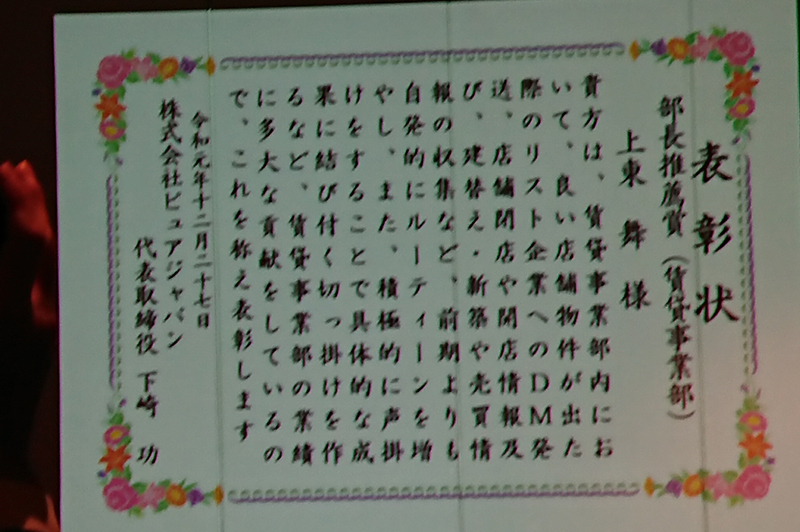 表彰状
部長推薦賞(賃貸事業部)
上東 舞 様
貴方は、賃貸事業部内にお
いて、良い店舗物件が出た
際のリスト企業へのDM発
送、店舗閉店や開店情報及
び、建替え・新築や売買情
報の収集など、前期よりも
自発的にルーティーンを増
やし、また、積極的に声掛
けをすることで具体的な成
果に結び付く切っ掛けを作
るなど、賃貸事業部の業績
に多大な貢献をしているの
で、これを称え表彰します
令和元年十二月二十七日
株式会社ピュアジャパン
代表取締役 下崎 功